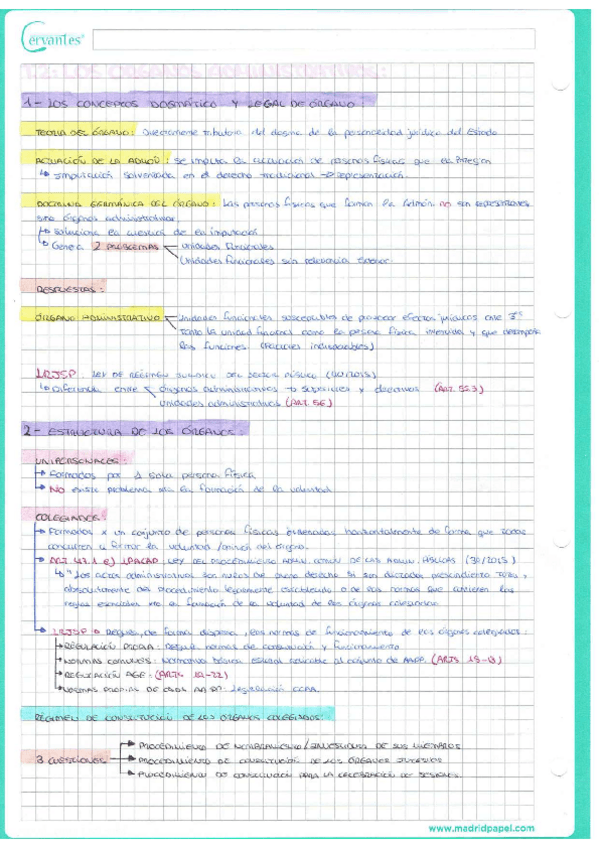 Cervantes®
T.2: LOS ÓRGANOS ADMINISTRATIVOS:
1- LOS CONCEPTOS DOGMÁTICO Y LEGAL DE ÓRGANO:
TEORIA DEL ÓRGANO: Directamente tributaria del dogma de la personalidad jurídica del Estado
ACTUACIÓN DE LA ADMÓN: se imputa la actuación de personas físicas que la
↳ Imputación solventada en el derecho tradicional → representación.
DOCTRINA GERMÁNICA DEL ÓRGANO: Las personas físicas que forman la Admón. no son representantes
sino órganos administrativos.
↳ Soluciona la cuestión de la imputación
↳ Genera 2 PROBLEMAS unidades funcionales
Unidades funcionales sin relevancia exterior.
RESPUESTAS:
ÓRGANO ADMINISTRATIVO Unidades funcionales susceptibles de provocar efectos jurídicos ante 3os
Tanto la unidad funcional como la persona física y que desempeña
las funciones. (Facciones inseparables)
LRJSP: LEY DE RÉGIMEN JURÍDICO DEL SECTOR PÚBLICO (40/2015)
↳ Diferencia entre órganos administrativos → superiores y directivos (ART. 55.3)
Unidades administrativas (ART. 56)
2- ESTRUCTURA DE LOS ÓRGANOS:
UNIPERSONALES:
Formados por 1 sola persona física
NO existe problema en la formación de la voluntad
COLEGIADOS:
Formados x un conjunto de personas físicas ordenadas horizontalmente de forma que todas
concurren a formar la voluntad / del órgano.
ART. 47.1 e) LPACAP: LEY DEL PROCEDIMIENTO ADM. COMÚN DE LAS ADMN. PÚBLICAS (39/2015)
↳ "Los actos administrativos son nulos de pleno derecho si son dictados prescindiendo total y
absolutamente del procedimiento legalmente establecido o de las normas que contienen las
reglas esenciales para la formación de la voluntad de los órganos colegiados
LRJSP → Regula, de forma dispersa, las normas de funcionamiento de los órganos colegiados:
REGULACIÓN PROPIA: Seguir normas de constitución y funcionamiento
NORMAS COMUNES: Normativa básica estatal aplicable al conjunto de AAPP. (ARTS 15-18)
REGULACIÓN AGE: (ARTS 19-22)
NORMAS PROPIAS DE CADA AAPP: Legislación CCAA.
RÉGIMEN DE CONSTITUCIÓN DE LOS ÓRGANOS COLEGIADOS:
3 CUESTIONES PROCEDIMIENTO DE NOMBRAMIENTO / DE SUS MIEMBROS
PROCEDIMIENTO DE CONSTITUCIÓN DE LOS ÓRGANOS
PROCEDIMIENTO DE CONSTITUCIÓN PARA LA CELEBRACIÓN DE SESIONES.
www.madridpapel.com